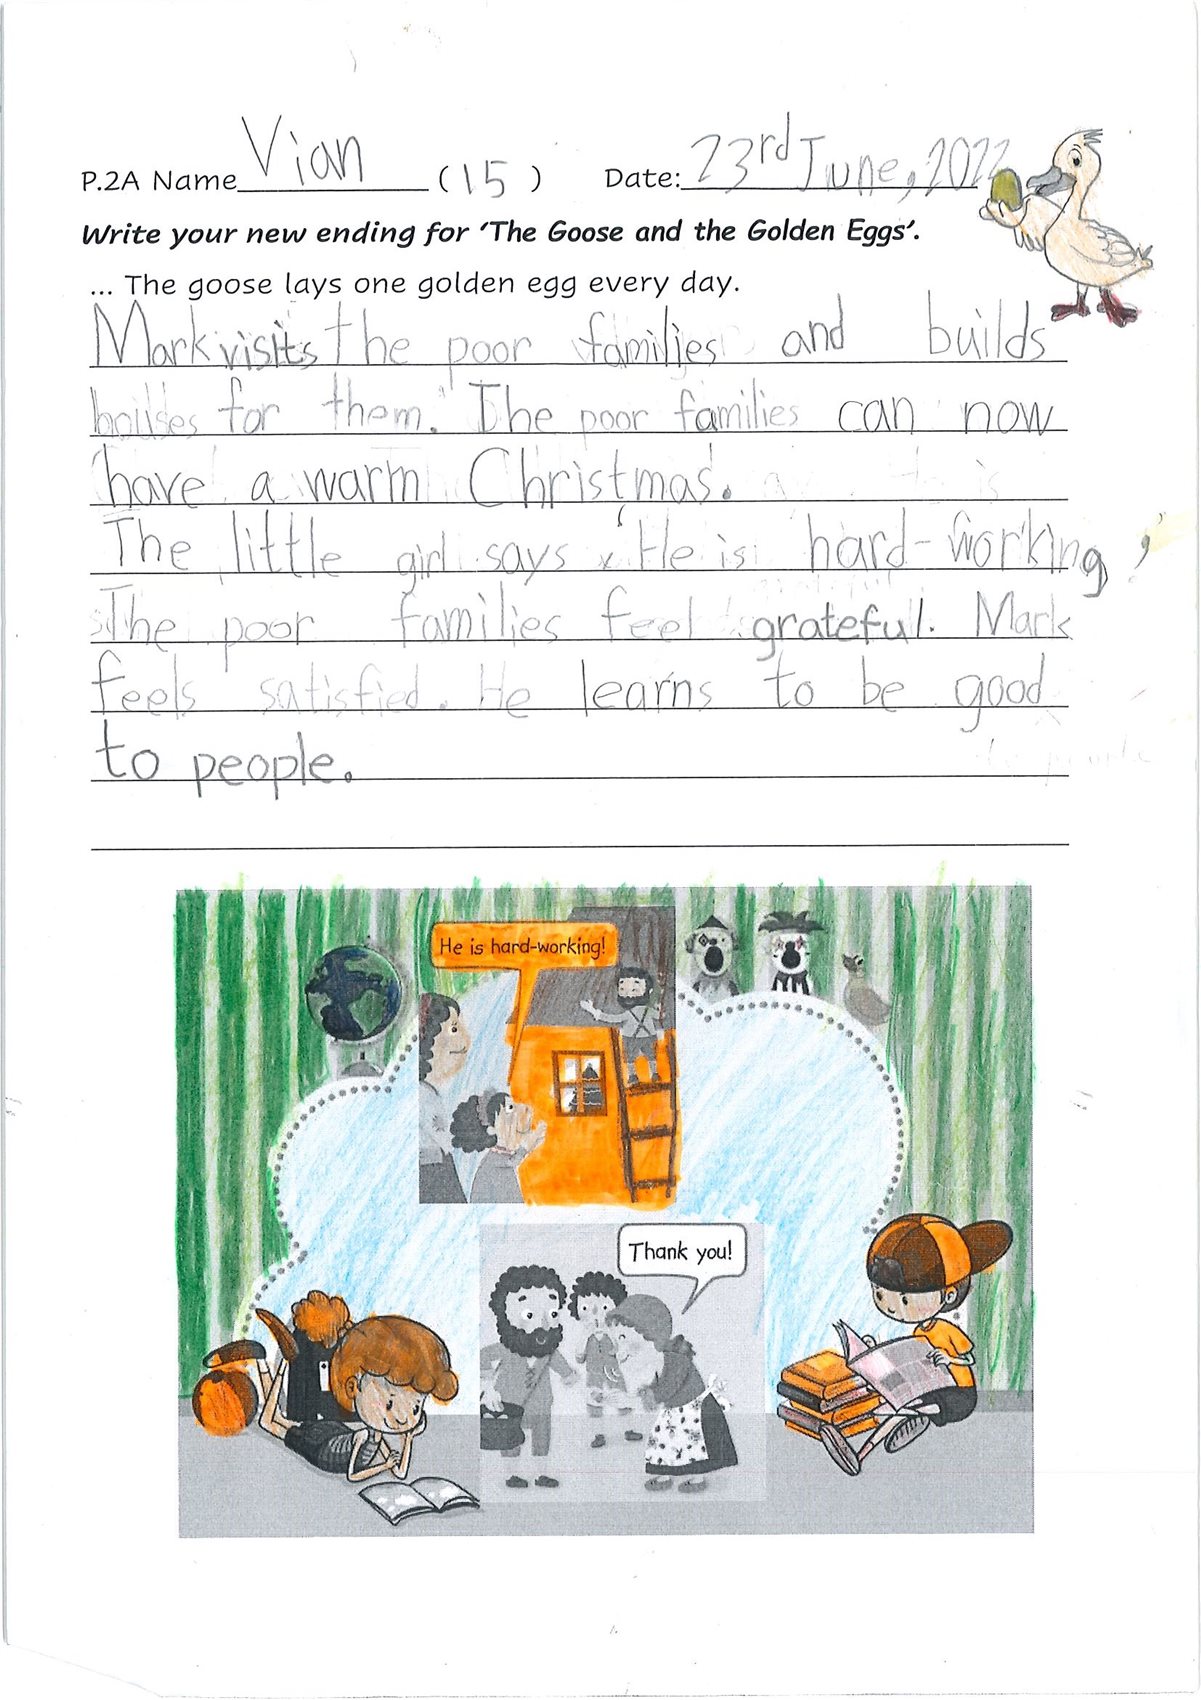 P.2A Name Vian (15) Date: 23rd June, 2022
Write your new ending for ‘The Goose and the Golden Eggs’.
... The goose lays one golden egg every day.
Mark visits the poor families and builds
houses for them. The poor families can now
have a warm Christmas.
The little girl says, ‘He is hard-working,’
The poor families feel grateful. Mark
feels satisfied. He learns to be good
to people.
He is hard-working!
Thank you!